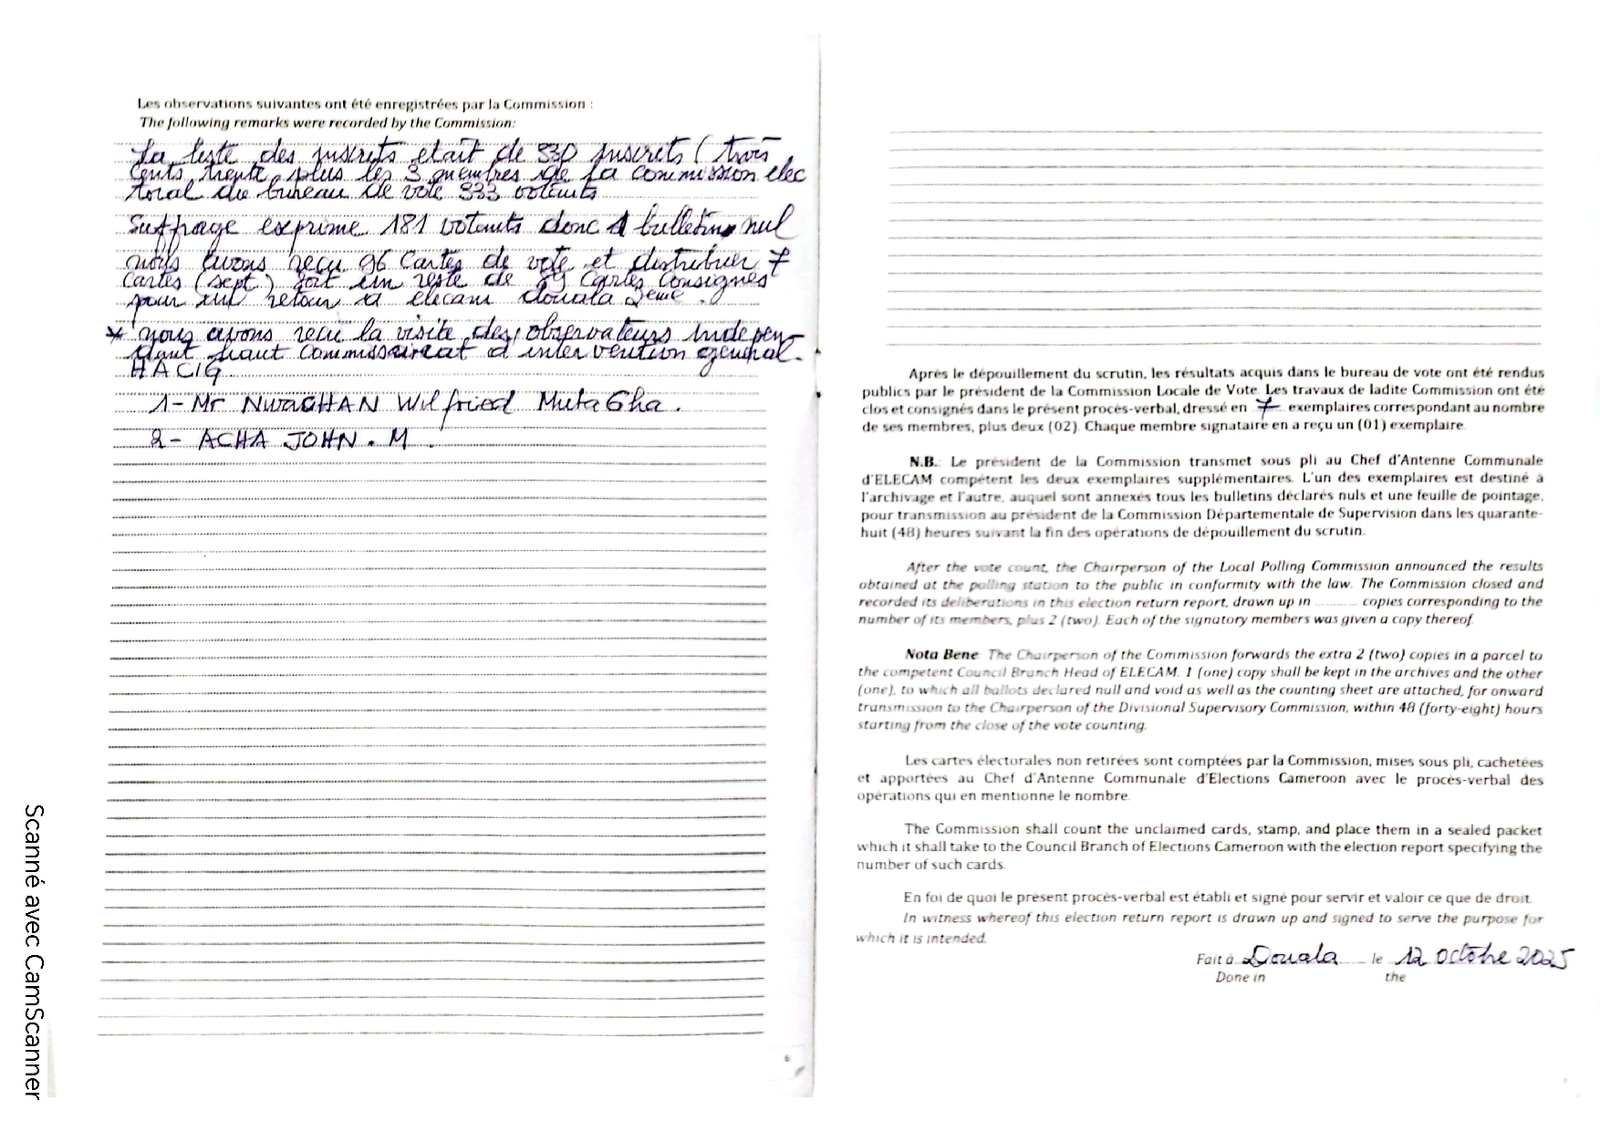 Les observations suivantes ont été enregistrées par la Commission :
The following remarks were recorded by the Commission:
La liste des inscrits etait de 330 inscrits ( trois
cents trente plus les 3 membres de la commission elec
toral du bureau de vote 333 votants
Suffrage exprime 181 votants donc 1 bulletin nul
nous avons reçu 96 Cartes de vote et distribuer 7
Cartes (sept) soit un reste de 89 Cartes Consignés
pour un retour a elecam douala 2eme.
* nous avons recu la visite des observateurs Indepen-
dant haut Commissariat d intervention general.
HACIG
1- Mr NWACHAN Wilfried Muta Gha.
2- ACHA JOHN. M.
6
Après le dépouillement du scrutin, les résultats acquis dans le bureau de vote ont été rendus
publics par le président de la Commission Locale de Vote. Les travaux de ladite Commission ont été
clos et consignés dans le présent procès-verbal, dressé en 7 exemplaires correspondant au nombre
de ses membres, plus deux (02). Chaque membre signataire en a reçu un (01) exemplaire.
N.B.: Le président de la Commission transmet sous pli au Chef d'Antenne Communale
d'ELECAM compétent les deux exemplaires supplémentaires. L'un des exemplaires est destiné à
l'archivage et l'autre, auquel sont annexés tous les bulletins déclarés nuls et une feuille de pointage,
pour transmission au président de la Commission Départementale de Supervision dans les quarante-
huit (48) heures suivant la fin des opérations de dépouillement du scrutin.
After the vote count, the Chairperson of the Local Polling Commission announced the results
obtained at the polling station to the public in conformity with the law. The Commission closed and
recorded its deliberations in this election return report, drawn up in ............ copies corresponding to the
number of its members, plus 2 (two). Each of the signatory members was given a copy thereof.
Nota Bene: The Chairperson of the Commission forwards the extra 2 (two) copies in a parcel to
the competent Council Branch Head of ELECAM. 1 (one) copy shall be kept in the archives and the other
(one), to which all ballots declared null and void as well as the counting sheet are attached, for onward
transmission to the Chairperson of the Divisional Supervisory Commission, within 48 (forty-eight) hours
starting from the close of the vote counting.
Les cartes électorales non retirées sont comptées par la Commission, mises sous pli, cachetées
et apportées au Chef d'Antenne Communale d'Elections Cameroon avec le procès-verbal des
opérations qui en mentionne le nombre.
The Commission shall count the unclaimed cards, stamp, and place them in a sealed packet
which it shall take to the Council Branch of Elections Cameroon with the election report specifying the
number of such cards.
En foi de quoi le présent procès-verbal est établi et signé pour servir et valoir ce que de droit.
In witness whereof this election return report is drawn up and signed to serve the purpose for
which it is intended.
Fait à Douala le 12 octobre 2025
Done in the
Scanné avec CamScanner